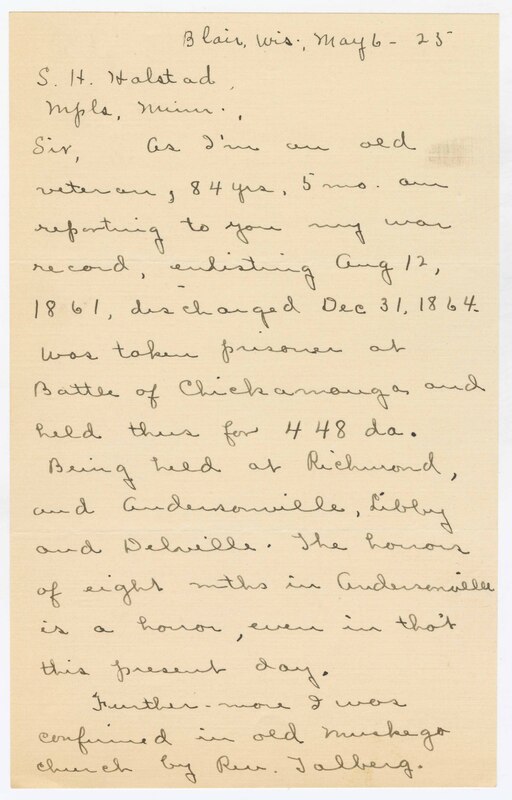 Blair, Wis., May 6 - 25
S. H. Halstad,
Mpls, Minn.,
Sir, As I'm an old
veteran, 84 yrs, 5 mo. am
reporting to you my war
record, enlisting Aug 12,
1861, discharged Dec 31, 1864.
Was taken prisoner at
Battle of Chickamauga and
held thus for 448 da.
Being held at Richmond,
and Andersonville, Libby
and Delville. The horrors
of eight mths in Andersonville
is a horror, even in tho't
this present day.
Further-more I was
confirmed in old Muskego
church by Rev. Talberg.